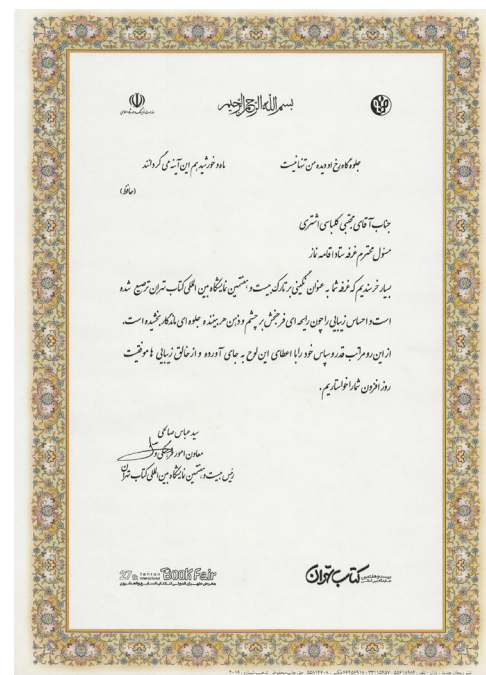 بسم الله الرحمن الرحیم
جلوه گاه رخ او دیده من تنها نیست
ماه و خورشید هم این آینه می گردانند
(حافظ)
جناب آقای مجتبی کلباسی اشتری
مسئول محترم غرفه ستاد اقامه نماز
بسیار خرسندیم که غرفه شما به عنوان نگینی بر تارک بیست و هفتمین نمایشگاه بین المللی کتاب تهران ترصیع شده
است و احساس زیبایی را چون رایحه ای فرحبخش بر چشم و ذهن هر بیننده جلوه ای ماندگار بخشیده است.
از این رو مراتب قدر و سپاس خود را با اعطای این لوح به جای آورده و از خالق زیبایی ها موفقیت
روز افزون شما را خواستاریم.
سید عباس صالحی
معاون امور فرهنگی و
رئیس بیست و هفتمین نمایشگاه بین المللی کتاب تهران
27th Tehran International Book Fair
بیست و هفتمین نمایشگاه بین المللی کتاب تهران